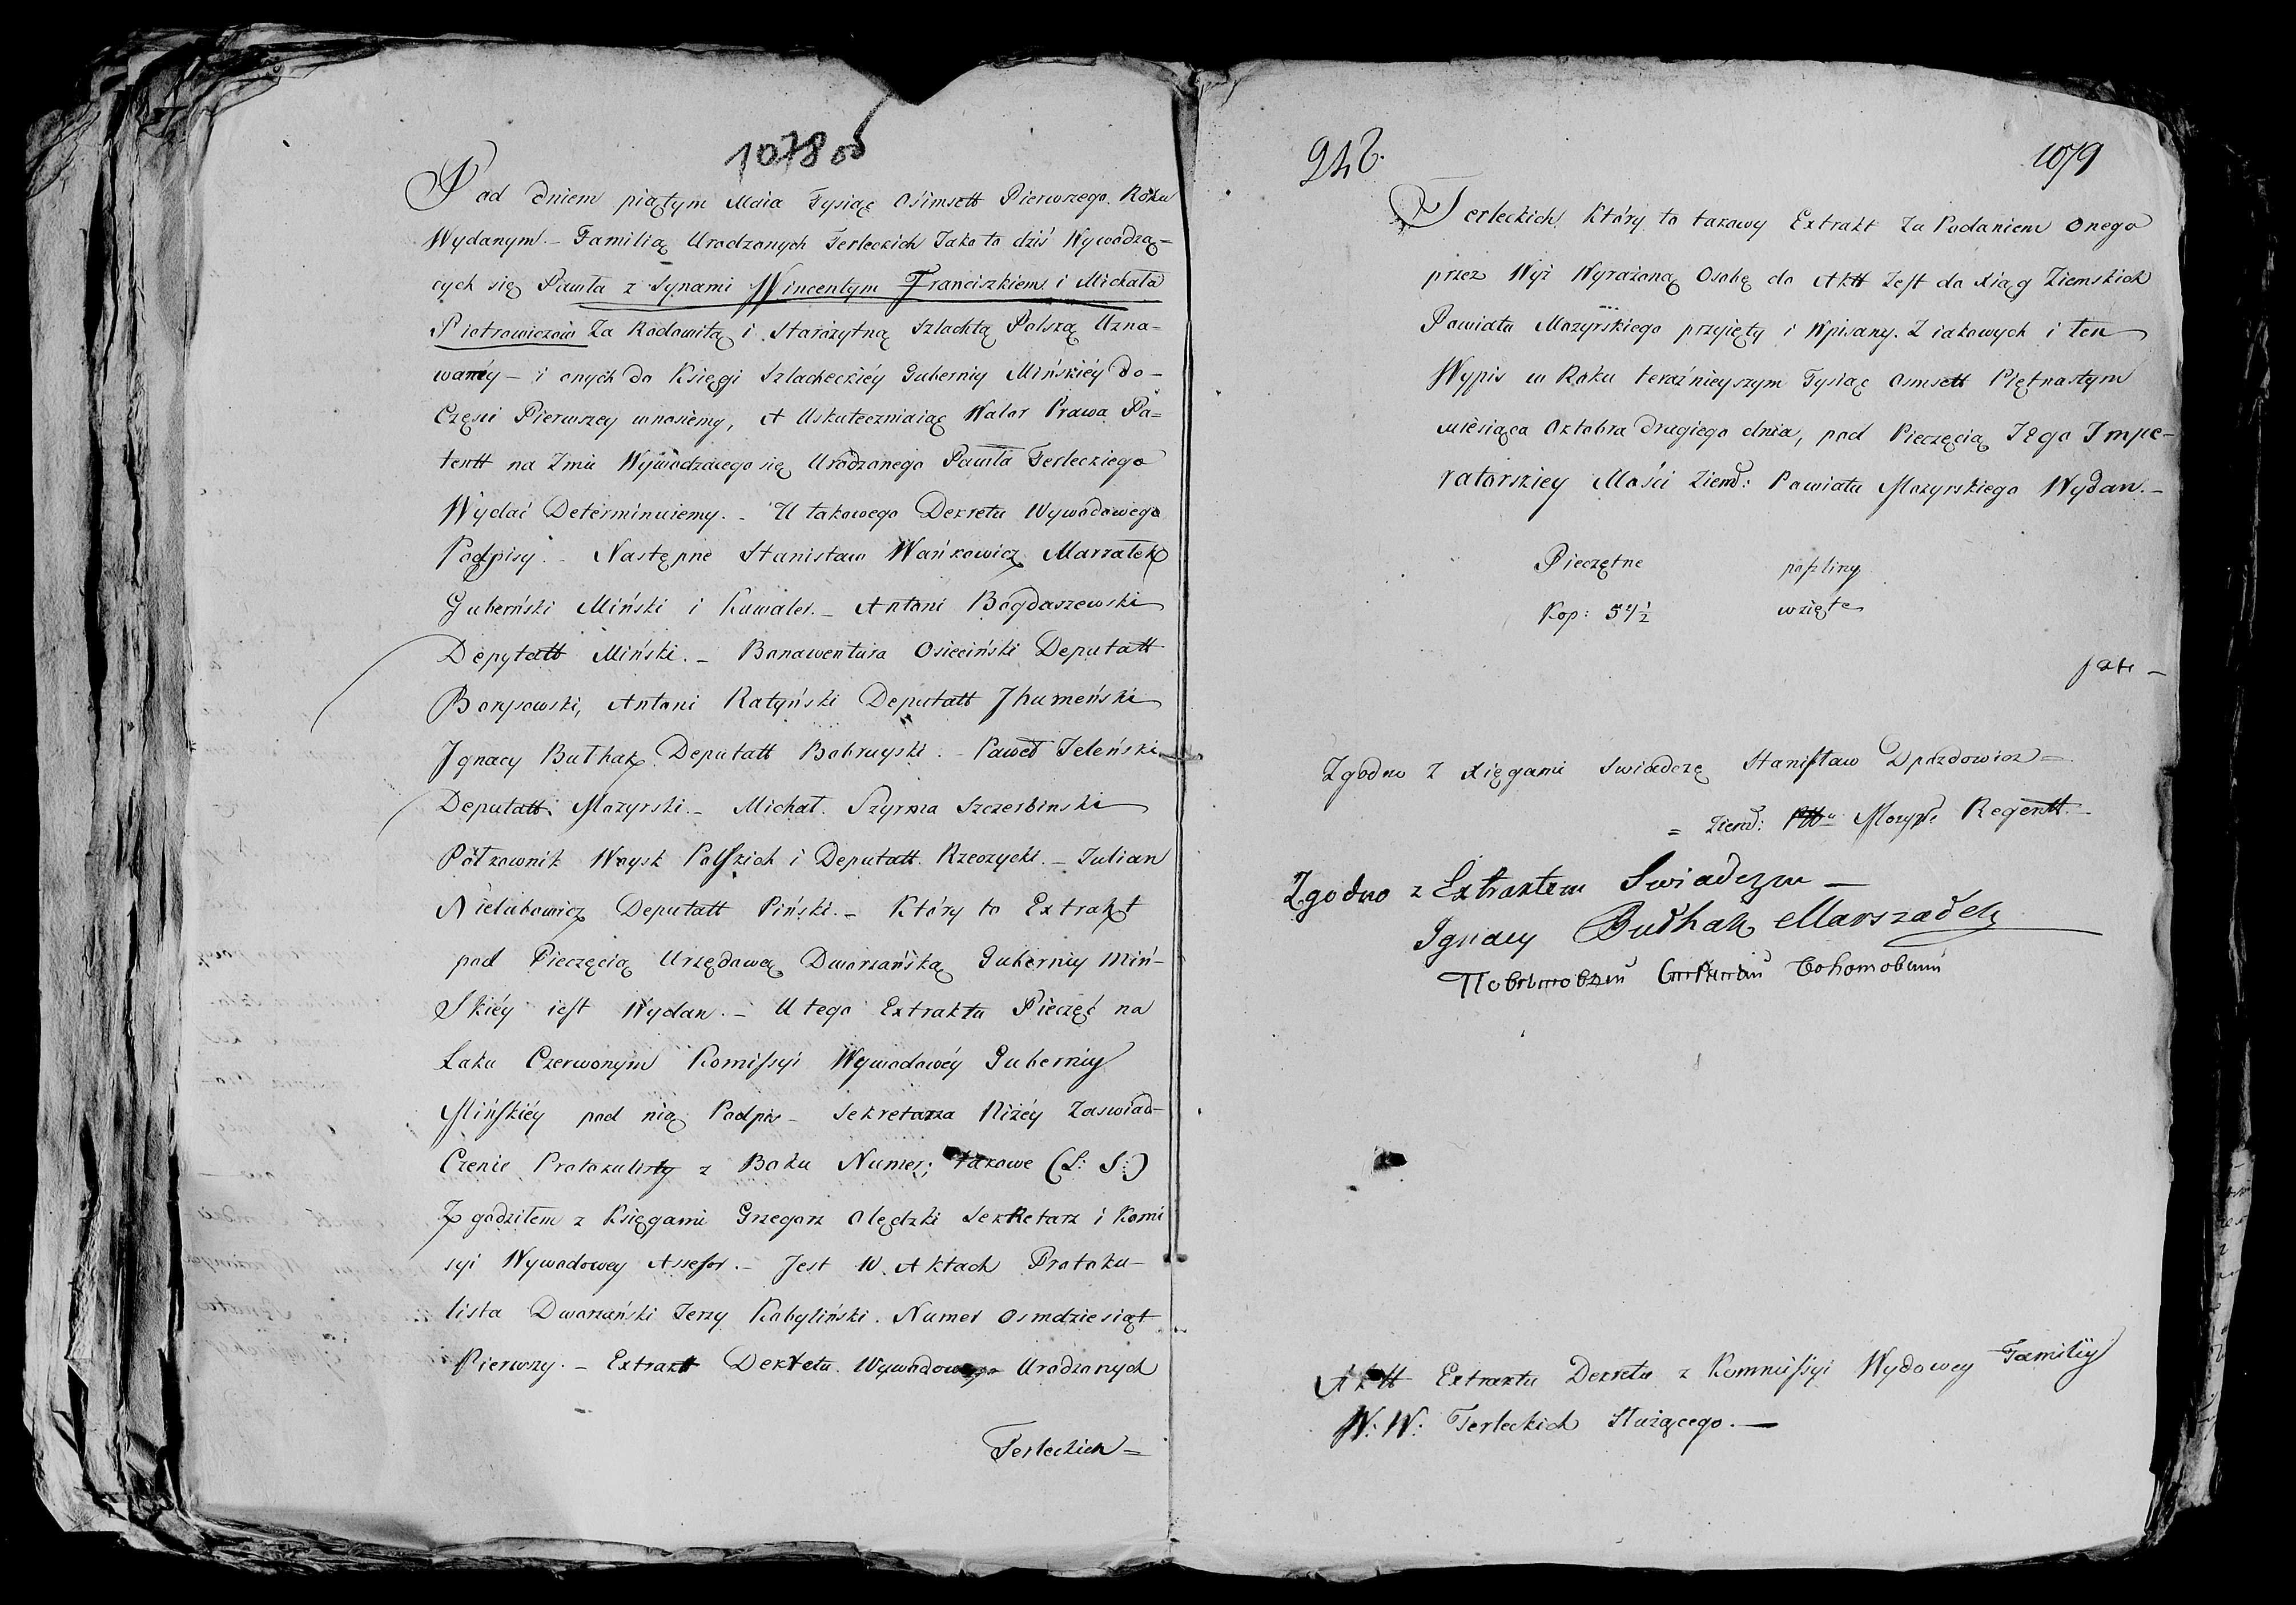 1078 об
Pod dniem piątym Maia Tysiąc Osimsett Pierwszego Roku
Wydanym. – Familią Urodzonych Terleckich Jako to dziś Wywodzą–
cych się Pawła z Synami Wincentym Franciszkiem i Michała
Piotrowiczów Za Rodowitą i Starożytną Szlachtą Polską Uzna–
wamy – i onych do Księgi Szlacheckiéy Gubernij Mińskiéy do–
Części Pierwszey wnosiemy, A Uskuteczniaiąc Walor Prawa Pa=
tentt na Imie Wywodzącego się Urodzonego Pawła Terleckiego
Wydać Determinuiemy. – U takowego Dekretu Wywodowego
Podpisy. – Następne Stanisław Wańkowicz Marszałek
Guberński Miński i Kawaler. – Antoni Bogdaszewski
Deputatt Miński. – Bonawentura Osieciński Deputatt
Borysowski, Antoni Ratyński Deputatt Jhumeński
Jgnacy Bułhak Deputatt Bobruyski. – Paweł Jeleński
Deputatt Mozyrski. – Michał Szyrma Szczerbinski
Półkownik Woysk Polskich i Deputatt Rzeczycki. – Julian
Nielubowicz Deputatt Piński. – Który to Extrakt
pod Pieczęcią Urzędową Dworzańską Gubernij Miń–
Skiéy iest Wydan. – U tego Extraktu Pieczęć na
Laku Czerwonym Komissyi Wywodowéy Gubernij
Mińskiéy pod nią Podpis – Sekretarza Niżéy Zaswiad–
Czenie Protokulisty z Boku Numer; takowe (L: S:)
Zgodziłem z Księgami Grzegorz Olędzki Sekretarz i Komi
syi Wywodowey Assessor. – Jest w Aktach Protoku–
lista Dworzański Jerzy Kobyliński. Numer Osmdziesiąt
Pierwszy. – Extrakt Dekretu Wywodowego Urodzonych
Terleckich =
1079
Terleckich, Który to takowy Extrakt Za Podaniem Onego
przez Wyż Wyrażoną Osobę do Aktt Jest do Xiąg Ziemskich
Powiatu Mozyrskiego przyięty i Wpisany. Z iakowych i ten
Wypis w Roku teraźnieyszym Tysiąc Osmsett Piętnastym
miesiąca Oktobra Drugiego dnia, pod Pieczęcią Jego Impe–
ratorskiey Mości Ziem: Powiatu Mozyrskiego Wydan. –
Pieczętne poszliny
Kop: 54½ wzięte
Zgodno Z Xięgami Swiadczę Stanisław Drozdowicz =
= Ziem: Pttu Mozyr: Regentt. –
Zgodno z Extraktem Swiadczymy –
Ignacy Bułhak Marszałek
Aktt Extraktu Dekretu z Kommissyi Wydowey Familij
W: W: Terleckich Służącego. –